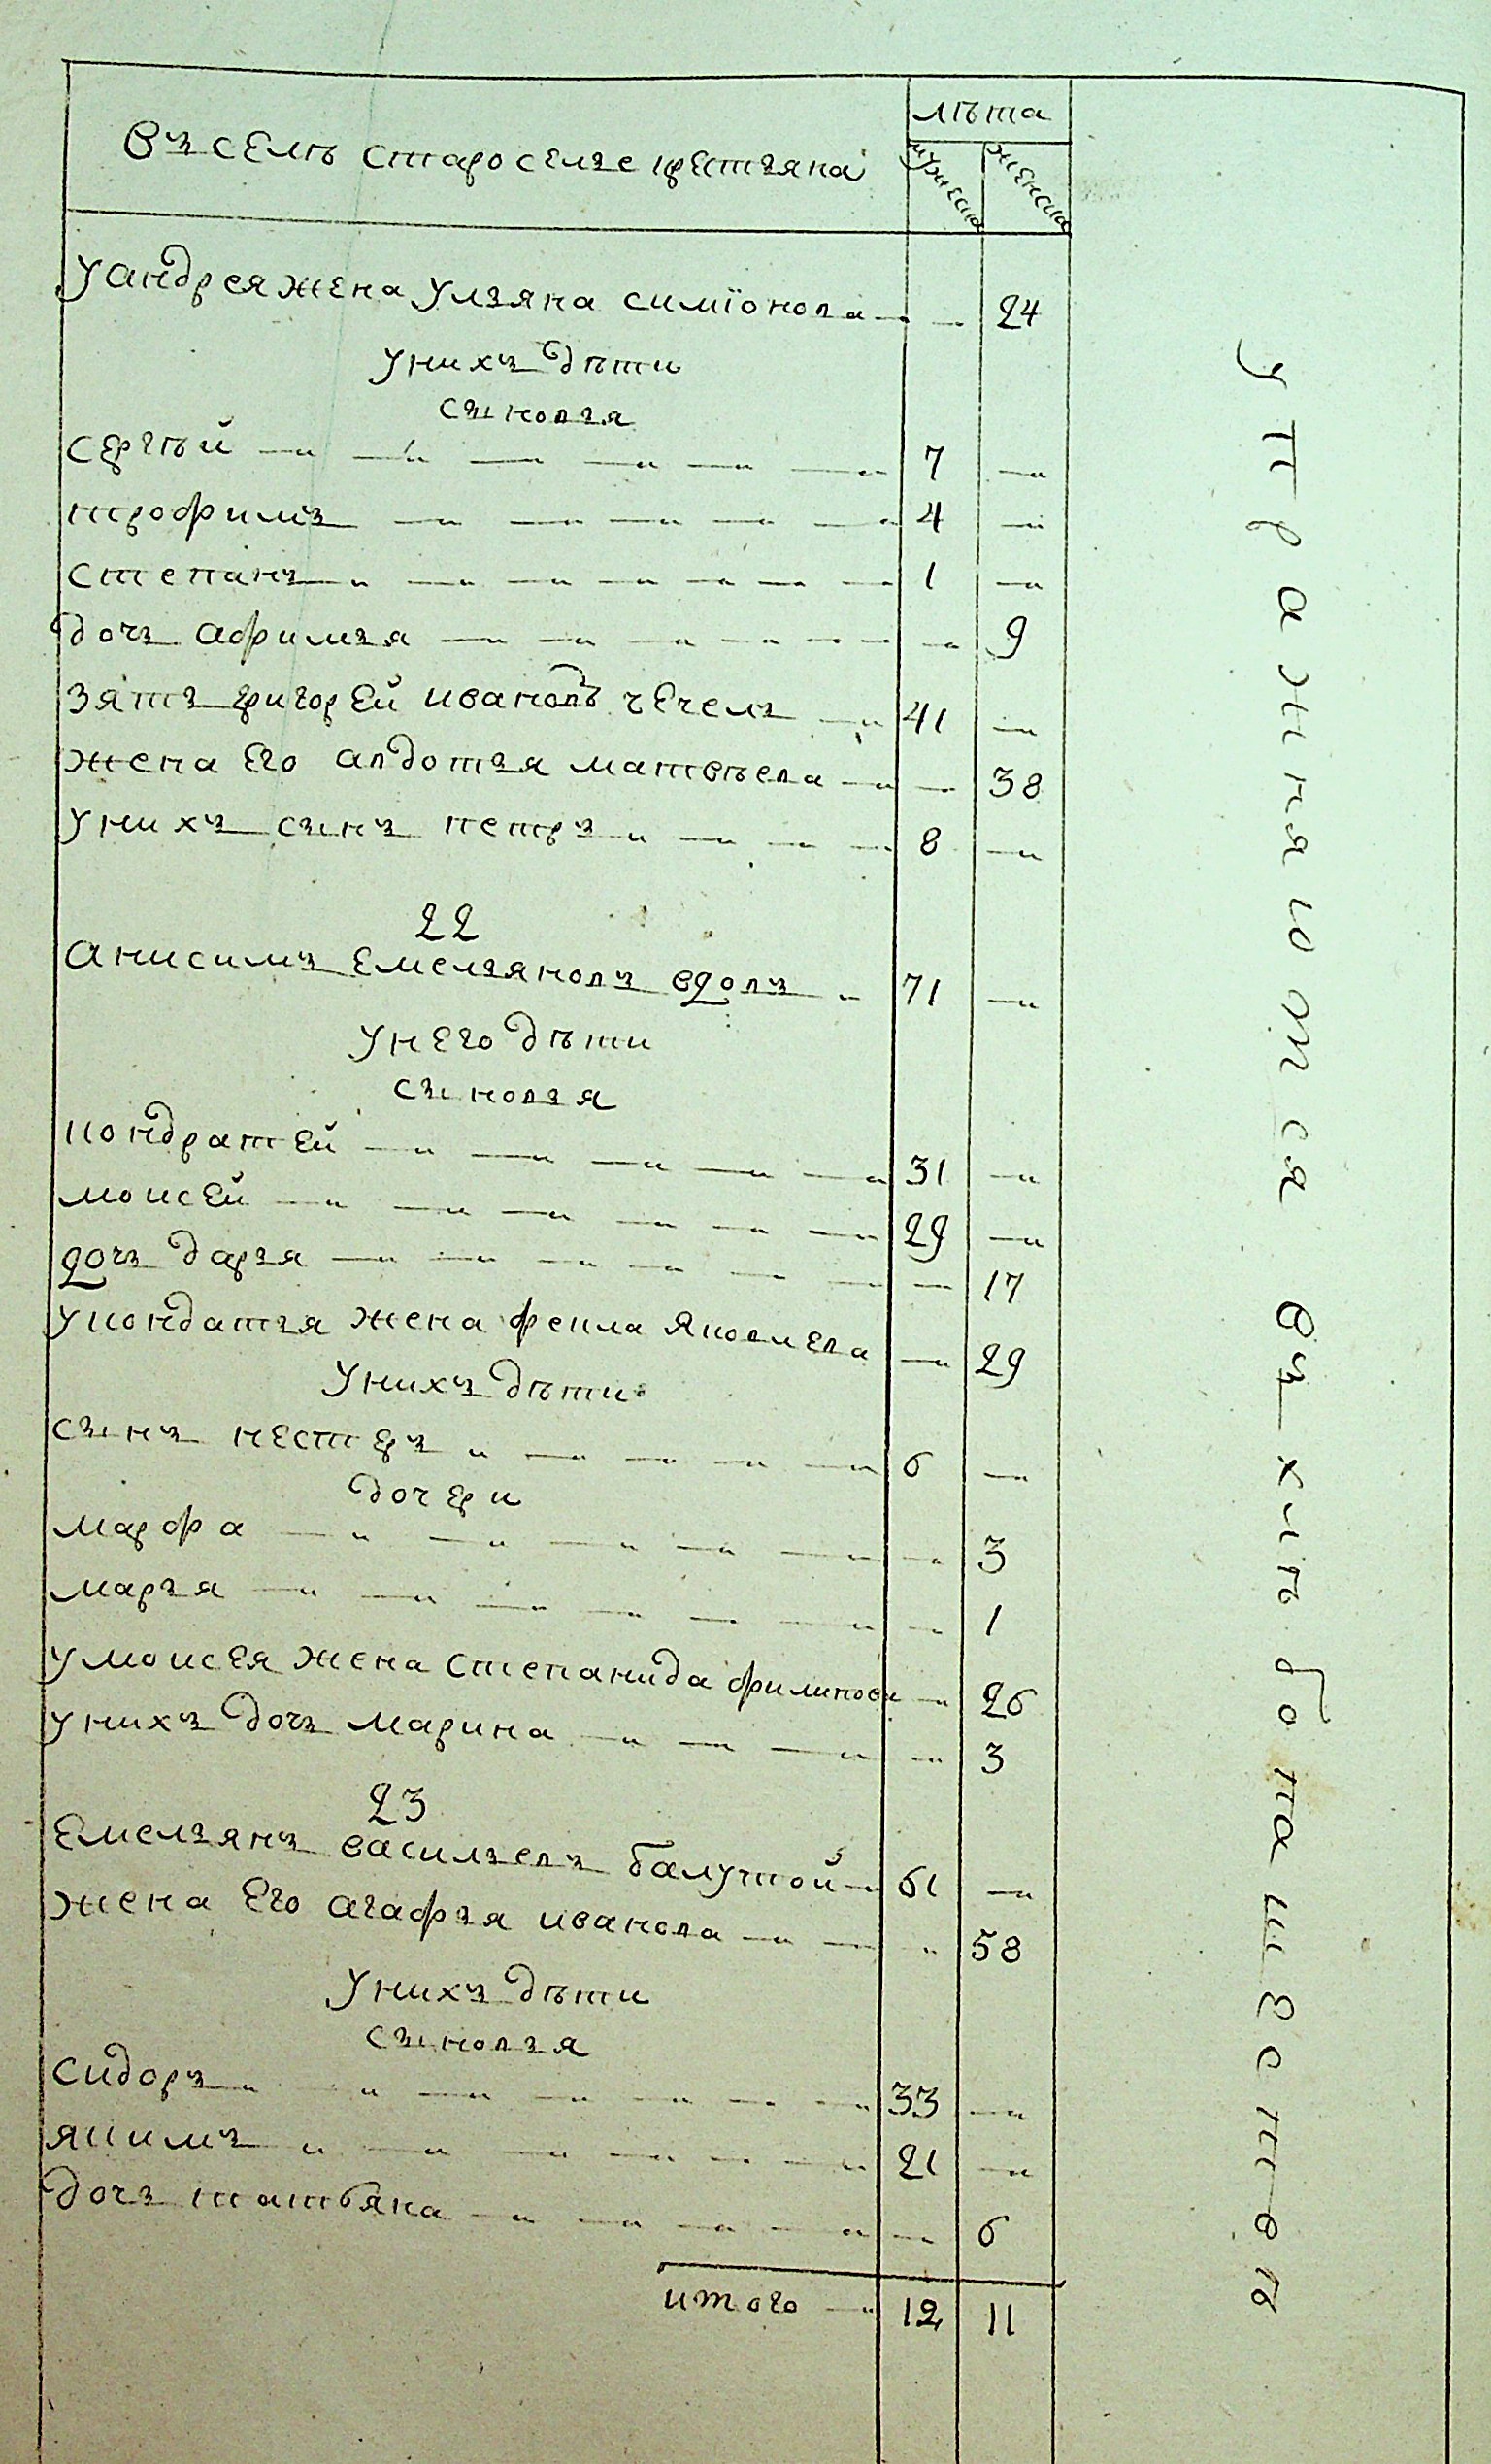 Въ селѣ староселье крестьяна
лѣта
мужеска
женска
у андрея жена ульяна симіонова — — 24
у нихъ дѣти
сыновья
сергѣй — 7 —
трофимъ — 4 —
степанъ — 1 —
дочь афимья — — 9
зять григорей ивановъ чечель — 41 —
жена его авдотья матвѣева — — 38
у нихъ сынъ петръ — 8 —
22
анисимъ емельяновъ вдовъ — 71 —
у него дѣти
сыновья
кондратей — 31 —
моисей — 29 —
дочь дарья — — 17
у кондатья жена фекла яковлева — 29
у нихъ дѣти
сынъ нестеръ — 6 —
дочери
марфа — — 3
марья — — 1
у моисея жена степанида филипова — 26
у нихъ дочь марина — — 3
23
емельянъ васильевъ балутой — 61 —
жена его агафья иванова — — 58
у нихъ дѣти
сыновья
сидоръ — 33 —
якимъ — 21 —
дочь татьяна — — 6
итого — 12 11
упражняются въ хлѣбопашествѣ